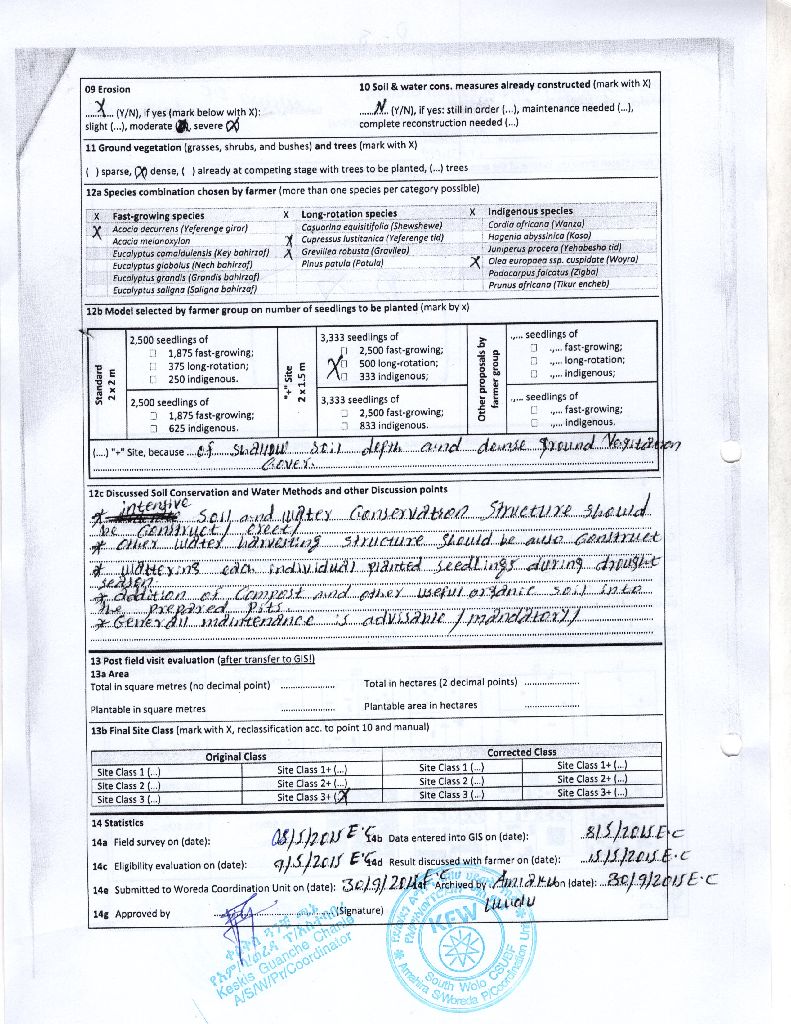 09 Erosion
10 Soil & water cons. measures already constructed (mark with X)
(Y/N), if yes (mark below with X):
N (Y/N), if yes: still in order (...), maintenance needed (...),
slight (...), moderate, severe (X)
complete reconstruction needed (...)
11 Ground vegetation (grasses, shrubs, and bushes) and trees (mark with X)
( ) sparse, (X) dense, ( ) already at competing stage with trees to be planted, (...) trees
12a Species combination chosen by farmer (more than one species per category possible)
X Fast-growing species
X Acacia decurrens (Yeferenge girar)
Acacia melanoxylon
Eucalyptus camaldulensis (Key bahirzaf)
Eucalyptus globolus (Nech bahirzaf)
Eucalyptus grandis (Grandis bahirzaf)
Eucalyptus saligna (Saligna bahirzaf)
X Long-rotation species
Casuarina equisitifolia (Shewshewe)
X Cupressus lustitanica (Yeferenge tid)
X Grevillea robusta (Gravilea)
Pinus patula (Patula)
X Indigenous species
Cordia africana (Wanza)
Hagenia abyssinica (Koso)
Juniperus procera (Yehabesha tid)
X Olea europaea ssp. cuspidate (Woyra)
Podocarpus falcatus (Zigba)
Prunus africana (Tikur encheb)
12b Model selected by farmer group on number of seedlings to be planted (mark by x)
Standard
2 x 2 m
2,500 seedlings of
1,875 fast-growing;
375 long-rotation;
250 indigenous.
2,500 seedlings of
1,875 fast-growing;
625 indigenous.
"+" Site
2 x 1.5 m
3,333 seedlings of
2,500 fast-growing;
X 500 long-rotation;
333 indigenous;
3,333 seedlings of
2,500 fast-growing;
833 indigenous.
Other proposals by
farmer group
...... seedlings of
...... fast-growing;
...... long-rotation;
...... indigenous;
...... seedlings of
...... fast-growing;
...... indigenous.
(...) "+" Site, because of shallow soil depth and dense ground Vegitation
Cover.
12c Discussed Soil Conservation and Water Methods and other Discussion points
* intensive Soil and water Conservation Structure should
be Construct/ erect/
* other water harvesting structure should be auso Construct
* wattering each individual planted seedlings during drought
season.
* addition of Compost and other useful organic soil into
the prepared Pits.
* Generall maintenance is advisable /mandatory/
13 Post field visit evaluation (after transfer to GIS!)
13a Area
Total in square metres (no decimal point) ......................
Total in hectares (2 decimal points) ......................
Plantable in square metres ......................
Plantable area in hectares ......................
13b Final Site Class (mark with X, reclassification acc. to point 10 and manual)
Original Class
Corrected Class
Site Class 1 (...) Site Class 1+ (...) Site Class 1 (...) Site Class 1+ (...)
Site Class 2 (...) Site Class 2+ (...) Site Class 2 (...) Site Class 2+ (...)
Site Class 3 (...) Site Class 3+ (X) Site Class 3 (...) Site Class 3+ (...)
14 Statistics
14a Field survey on (date): 08/5/2015 E.C
14b Data entered into GIS on (date): 8/5/2015 E.C
14c Eligibility evaluation on (date): 9/5/2015 E.C
14d Result discussed with farmer on (date): 15/5/2015 E.C
14e Submitted to Woreda Coordination Unit on (date): 30/9/2015
14f Archived by on (date): 30/9/2015 E.C
14g Approved by (Signature)
Keskis Guanche Chanie
A/S/W/Pr/Coordinator
KFW
South Wolo CSUBF
Amahira S/Woreda P/Coordination Unit